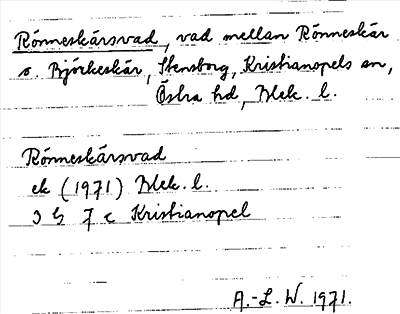 Rönneskärsvad, vad mellan Rönneskär
o. Björkeskär, Stensborg, Kristianopels sn,
Östra hd, Blek. l.
Rönneskärsvad
ek (1971) Blek. l.
3 G 7 c Kristianopel
A.-L. W. 1971.